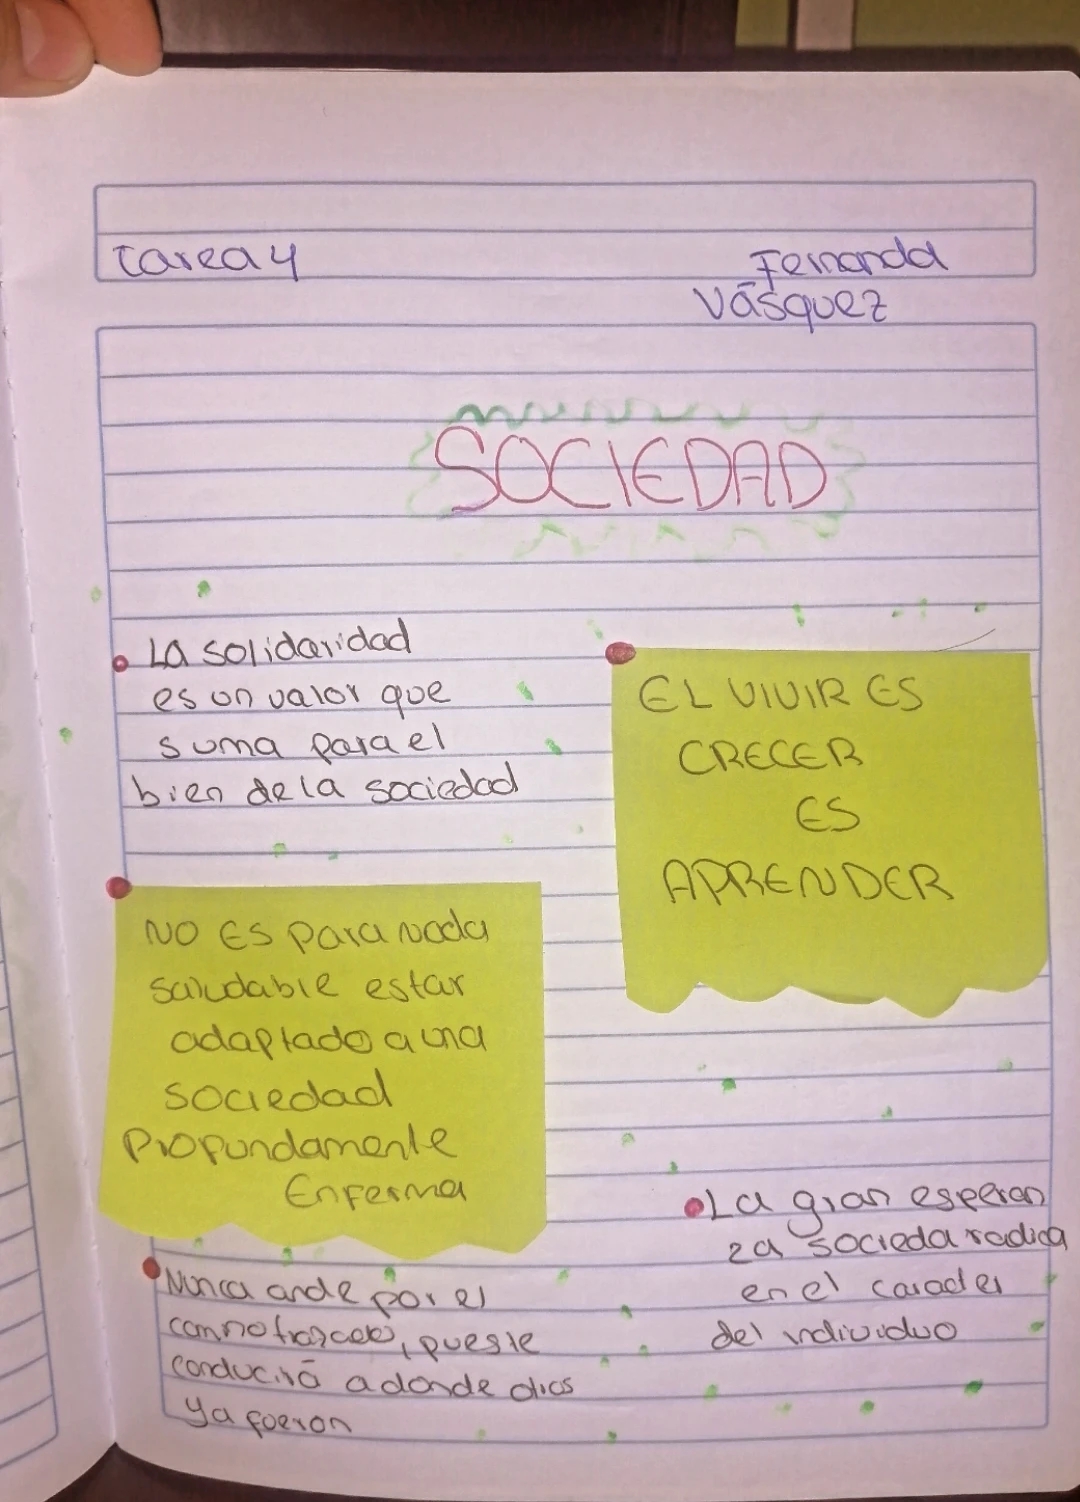 tarea 4
Fernanda
Vásquez
SOCIEDAD
LA solidaridad
es un valor que
suma para el
bien de la sociedad
EL VIVIR ES
CRECER
ES
APRENDER
NO ES para nada
saludable estar
adaptado a una
sociedad
Profundamente
Enferma
La gran esperan
za sociedad radica
en el caracter
del individuo
Nunca ande por el
pues le
conducirá a donde
ya fueron